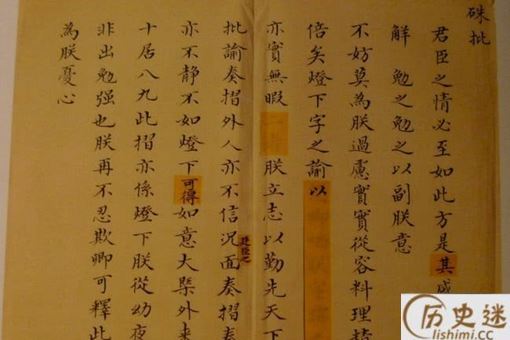 硃批
君臣之情必至如此方是其咸
解勉之勉之以副朕意
不妨莫為朕過慮實實從容料理精
倍矣燈下字之諭以
亦實無暇朕立志以勤先天下
批諭奏摺外人亦不信況廷臣之面奏摺奏
亦不静不如燈下可得如意大槩外來
十居八九此摺亦係燈下朕從幼夜
非出勉强也朕再不忍欺卿可釋此
為朕憂心
历史迷
lishimi.cc